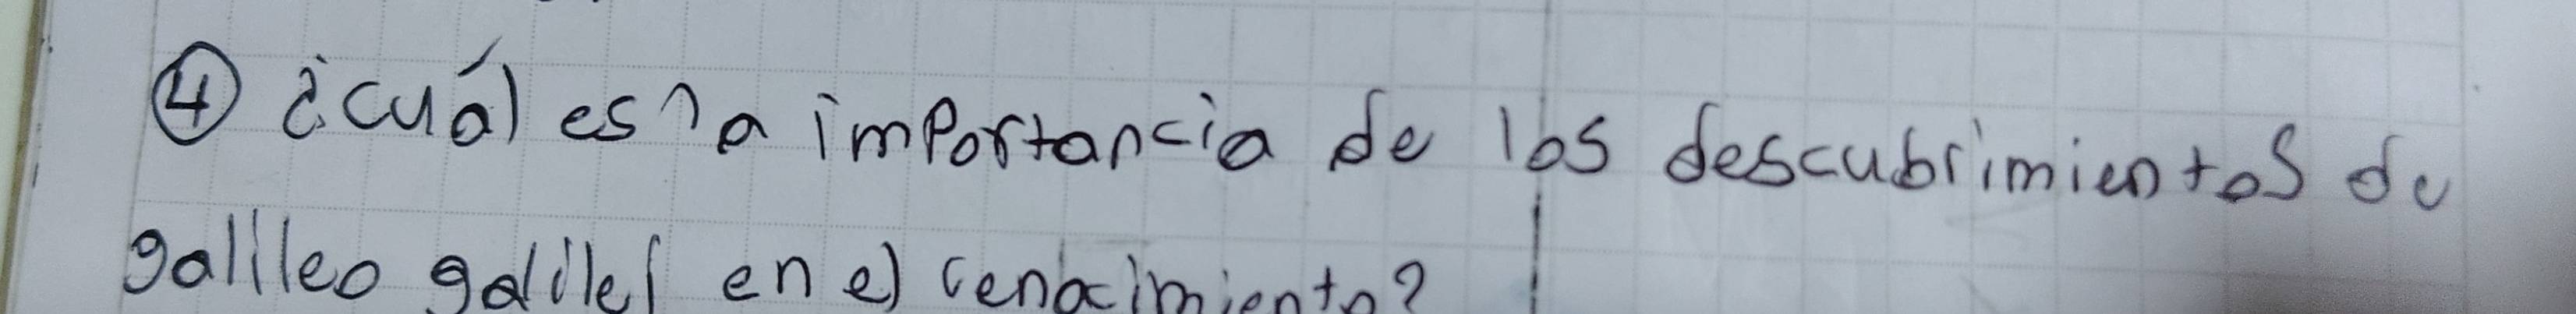 ④ ¿cuál es la importancia de los descubrimientos de
galileo galilei en el renacimiento?